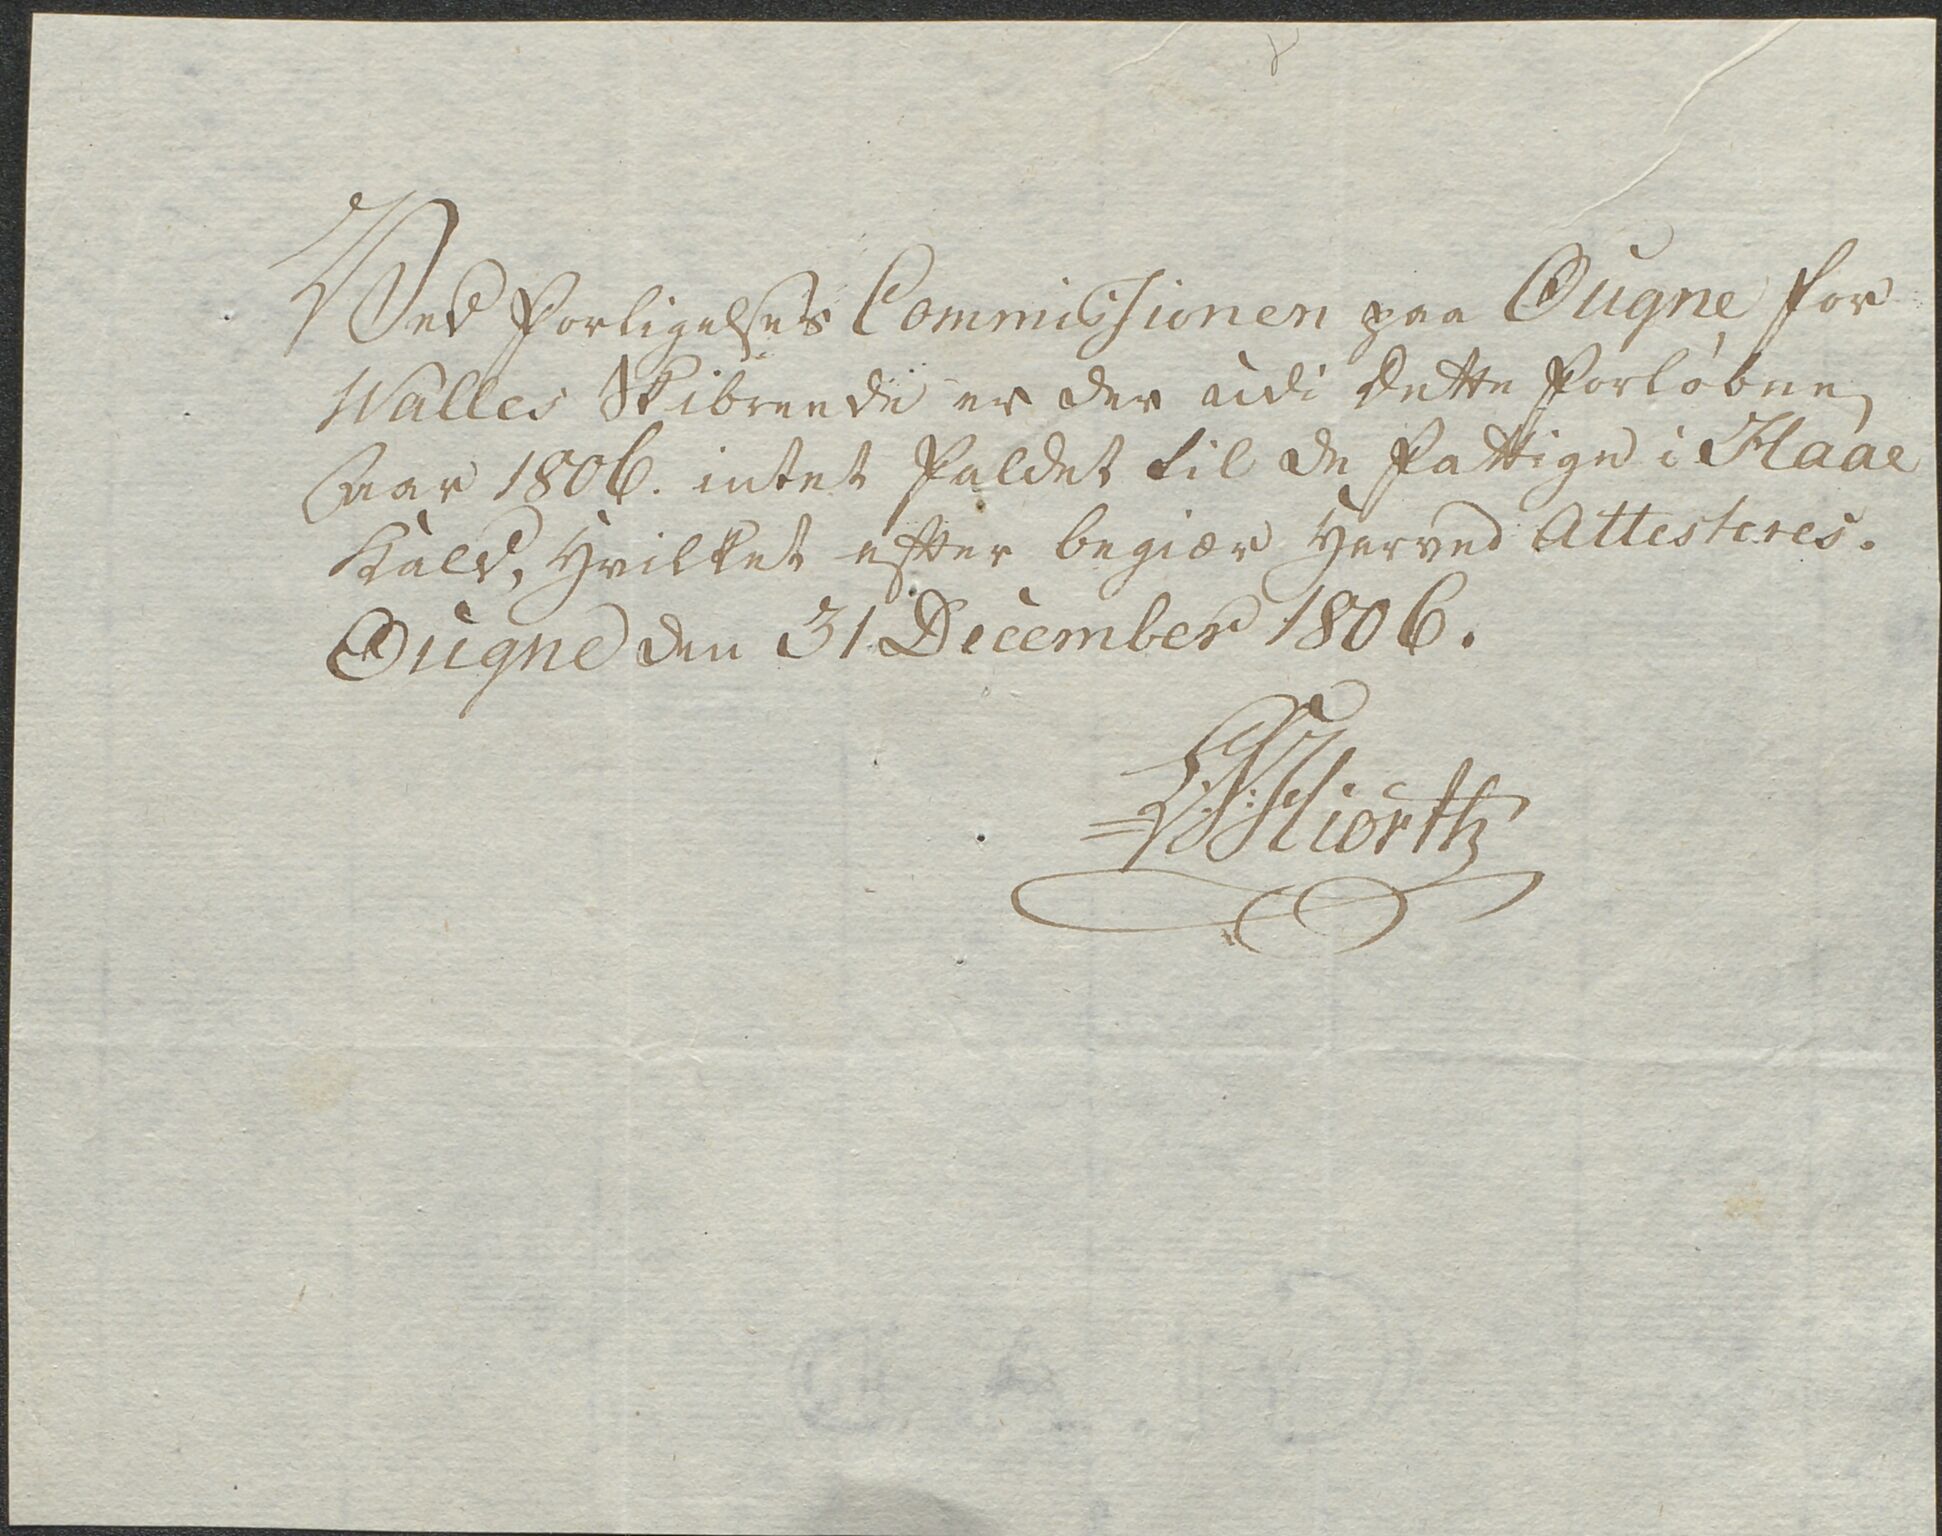 Ved Forligelses Commissionen paa Ougne for
Walles Skibreede er der udi dette forløbne
Aar 1806. intet faldet til de fattige i Haae
Kald, hvilket efter begiær herved Attesteres.
Ougne den 31 December 1806.
Hiorth